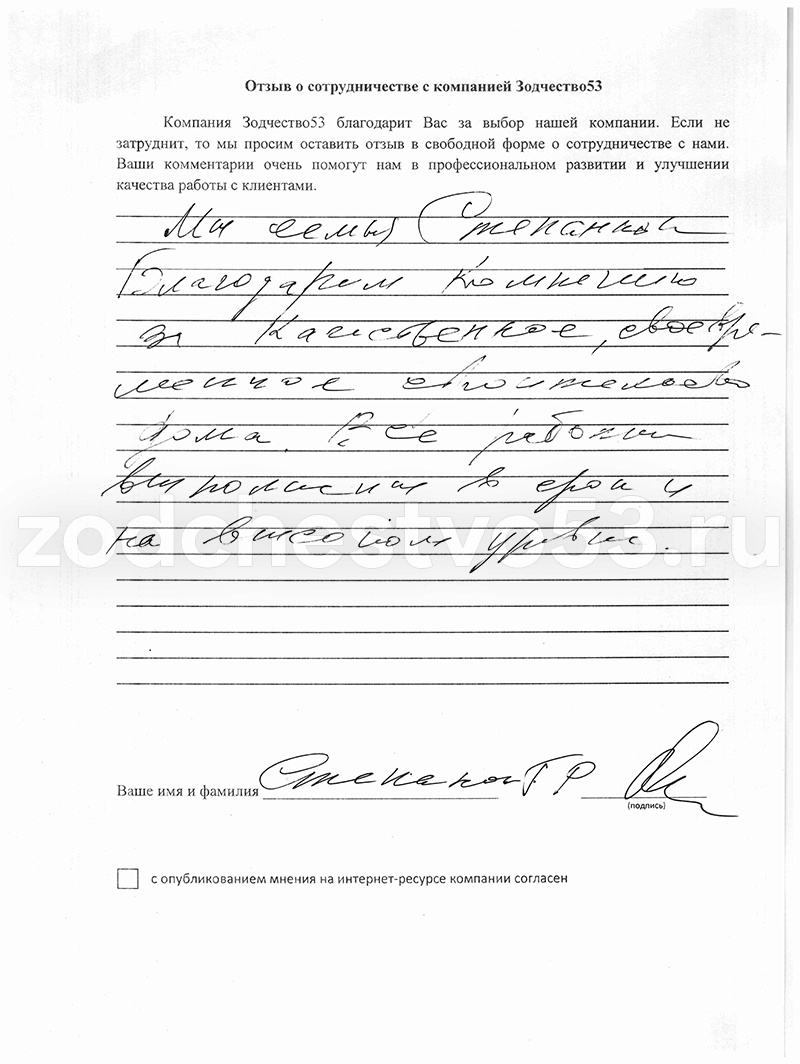 Отзыв о сотрудничестве с компанией Зодчество53
Компания Зодчество53 благодарит Вас за выбор нашей компании. Если не
затруднит, то мы просим оставить отзыв в свободной форме о сотрудничестве с нами.
Ваши комментарии очень помогут нам в профессиональном развитии и улучшении
качества работы с клиентами.
Мы семья
Благодарим Компанию
за Качественное, своевре-
менное строительство
дома. Все работы
выполнены в срок и
на высоком уровне.
zodchestvo53.ru
Ваше имя и фамилия
(подпись)
с опубликованием мнения на интернет-ресурсе компании согласен